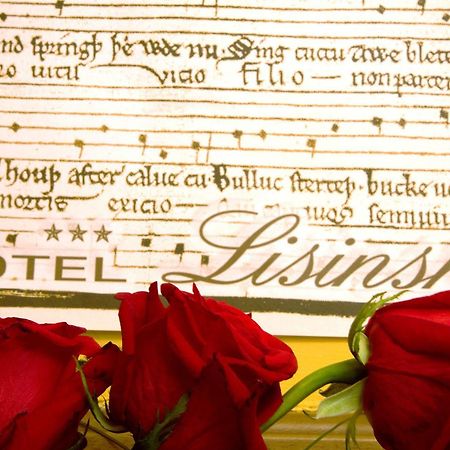 nd springþ þe wde nu. Sing cuccu Awe blete
ro vitis vicio filio non parcen
lhouþ after calue cu. Bulluc sterteþ. bucke u
mortis exicio semiuiu
OTEL Lisins